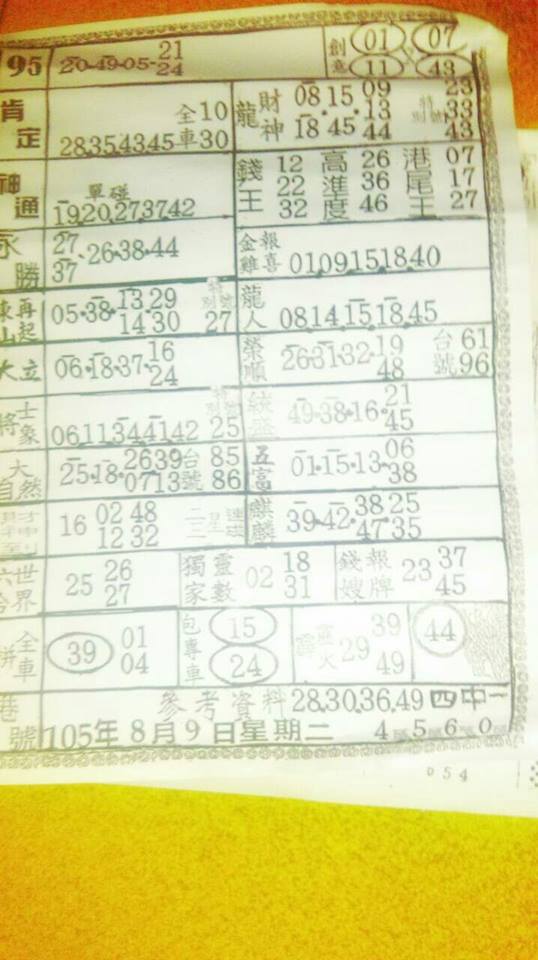 95 20-49-05-21 24 創意 01 07 11 43
肯定 28.35.43.45 全車 10 30 龍 財神 08 15 09 13 18 45 44 特別號 23 33 43
神通 單碰 19.20.27.37.42 錢王 12 22 32 高準度 26 36 46 港尾王 07 17 27
永勝 27 37 26-38-44 金雞報喜 01.09.15.18.40
東山再起 05-38-13 29 14 30 特別號 27 龍人 08.14.15.18.45
大立 06-18-37-16 24 榮順 26-31-32-19 48 台號 61 96
將士象 06.11.34.41.42 特別號 25 49-38-16-21 45
大自然 25-18-26 39 07 13 台號 85 86 五富 01-15-13-06 38
16 02 48 12 32 二星 麒麟 39-42-38 25 47 35
六合世界 25 26 27 獨家靈數 02 18 31 錢嫂報牌 23 37 45
併全車 39 01 04 包專車 15 24 霹靂火 29 39 49 44
港號 參考資料 28.30.36.49 四中一
105年8月9日星期二 4 5 6 0
054